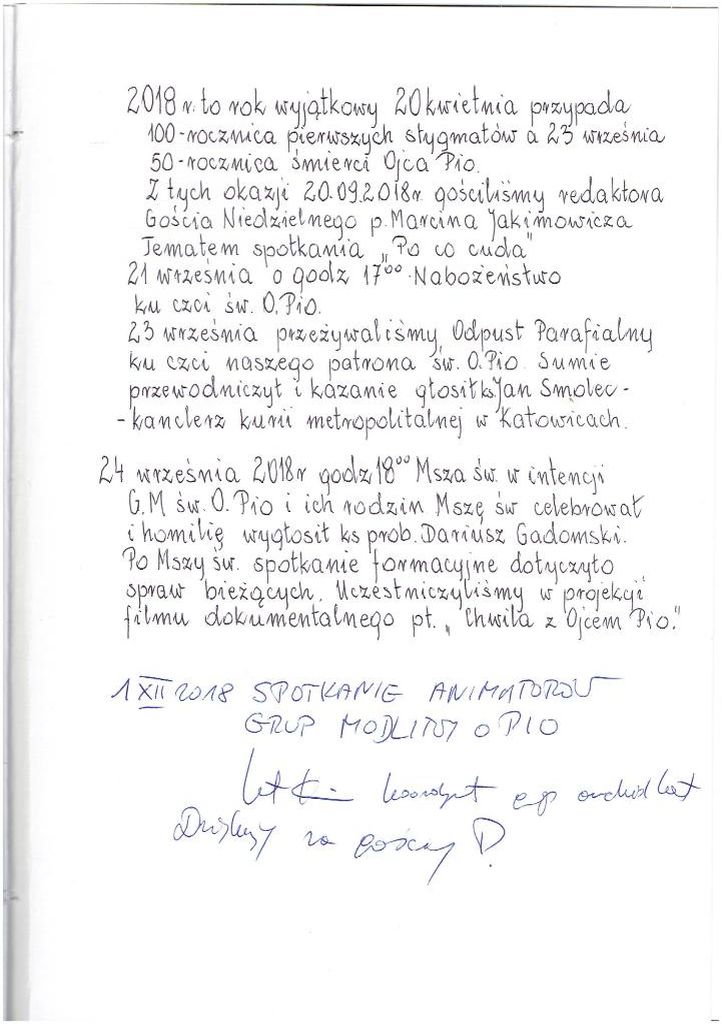 2018 r. to rok wyjątkowy 20 kwietnia przypada
100-rocznica pierwszych stygmatów a 23 września
50-rocznica śmierci Ojca Pio.
Z tych okazji 20.09.2018r gościliśmy redaktora
Gościa Niedzielnego p. Marcina Jakimowicza
Tematem spotkania „Po co cuda"
21 września o godz 17⁰⁰. Nabożeństwo
ku czci św. O. Pio.
23 września przeżywaliśmy Odpust Parafialny
ku czci naszego patrona św. O. Pio. Sumie
przewodniczył i kazanie głosił ks Jan Smolec -
- kanclerz kurii metropolitalnej w Katowicach.
24 września 2018r godz 18⁰⁰ Msza św. w intencji
G.M św. O. Pio i ich rodzin Mszę św celebrował
i homilię wygłosił ks prob. Dariusz Gadomski.
Po Mszy św. spotkanie formacyjne dotyczyło
spraw bieżących. Uczestniczyliśmy w projekcji
filmu dokumentalnego pt. „Chwila z Ojcem Pio."
1 XII 2018 SPOTKANIE ANIMATORÓW
GRUP MODLITWY O PIO
za